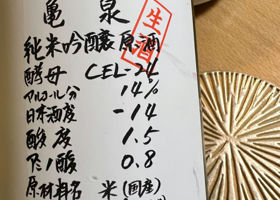 亀泉
生酒
純米吟醸原酒
酵母 CEL-24
アルコール分 14%
日本酒度 -14
酸度 1.5
アミノ酸 0.8
原材料名 米(国産)